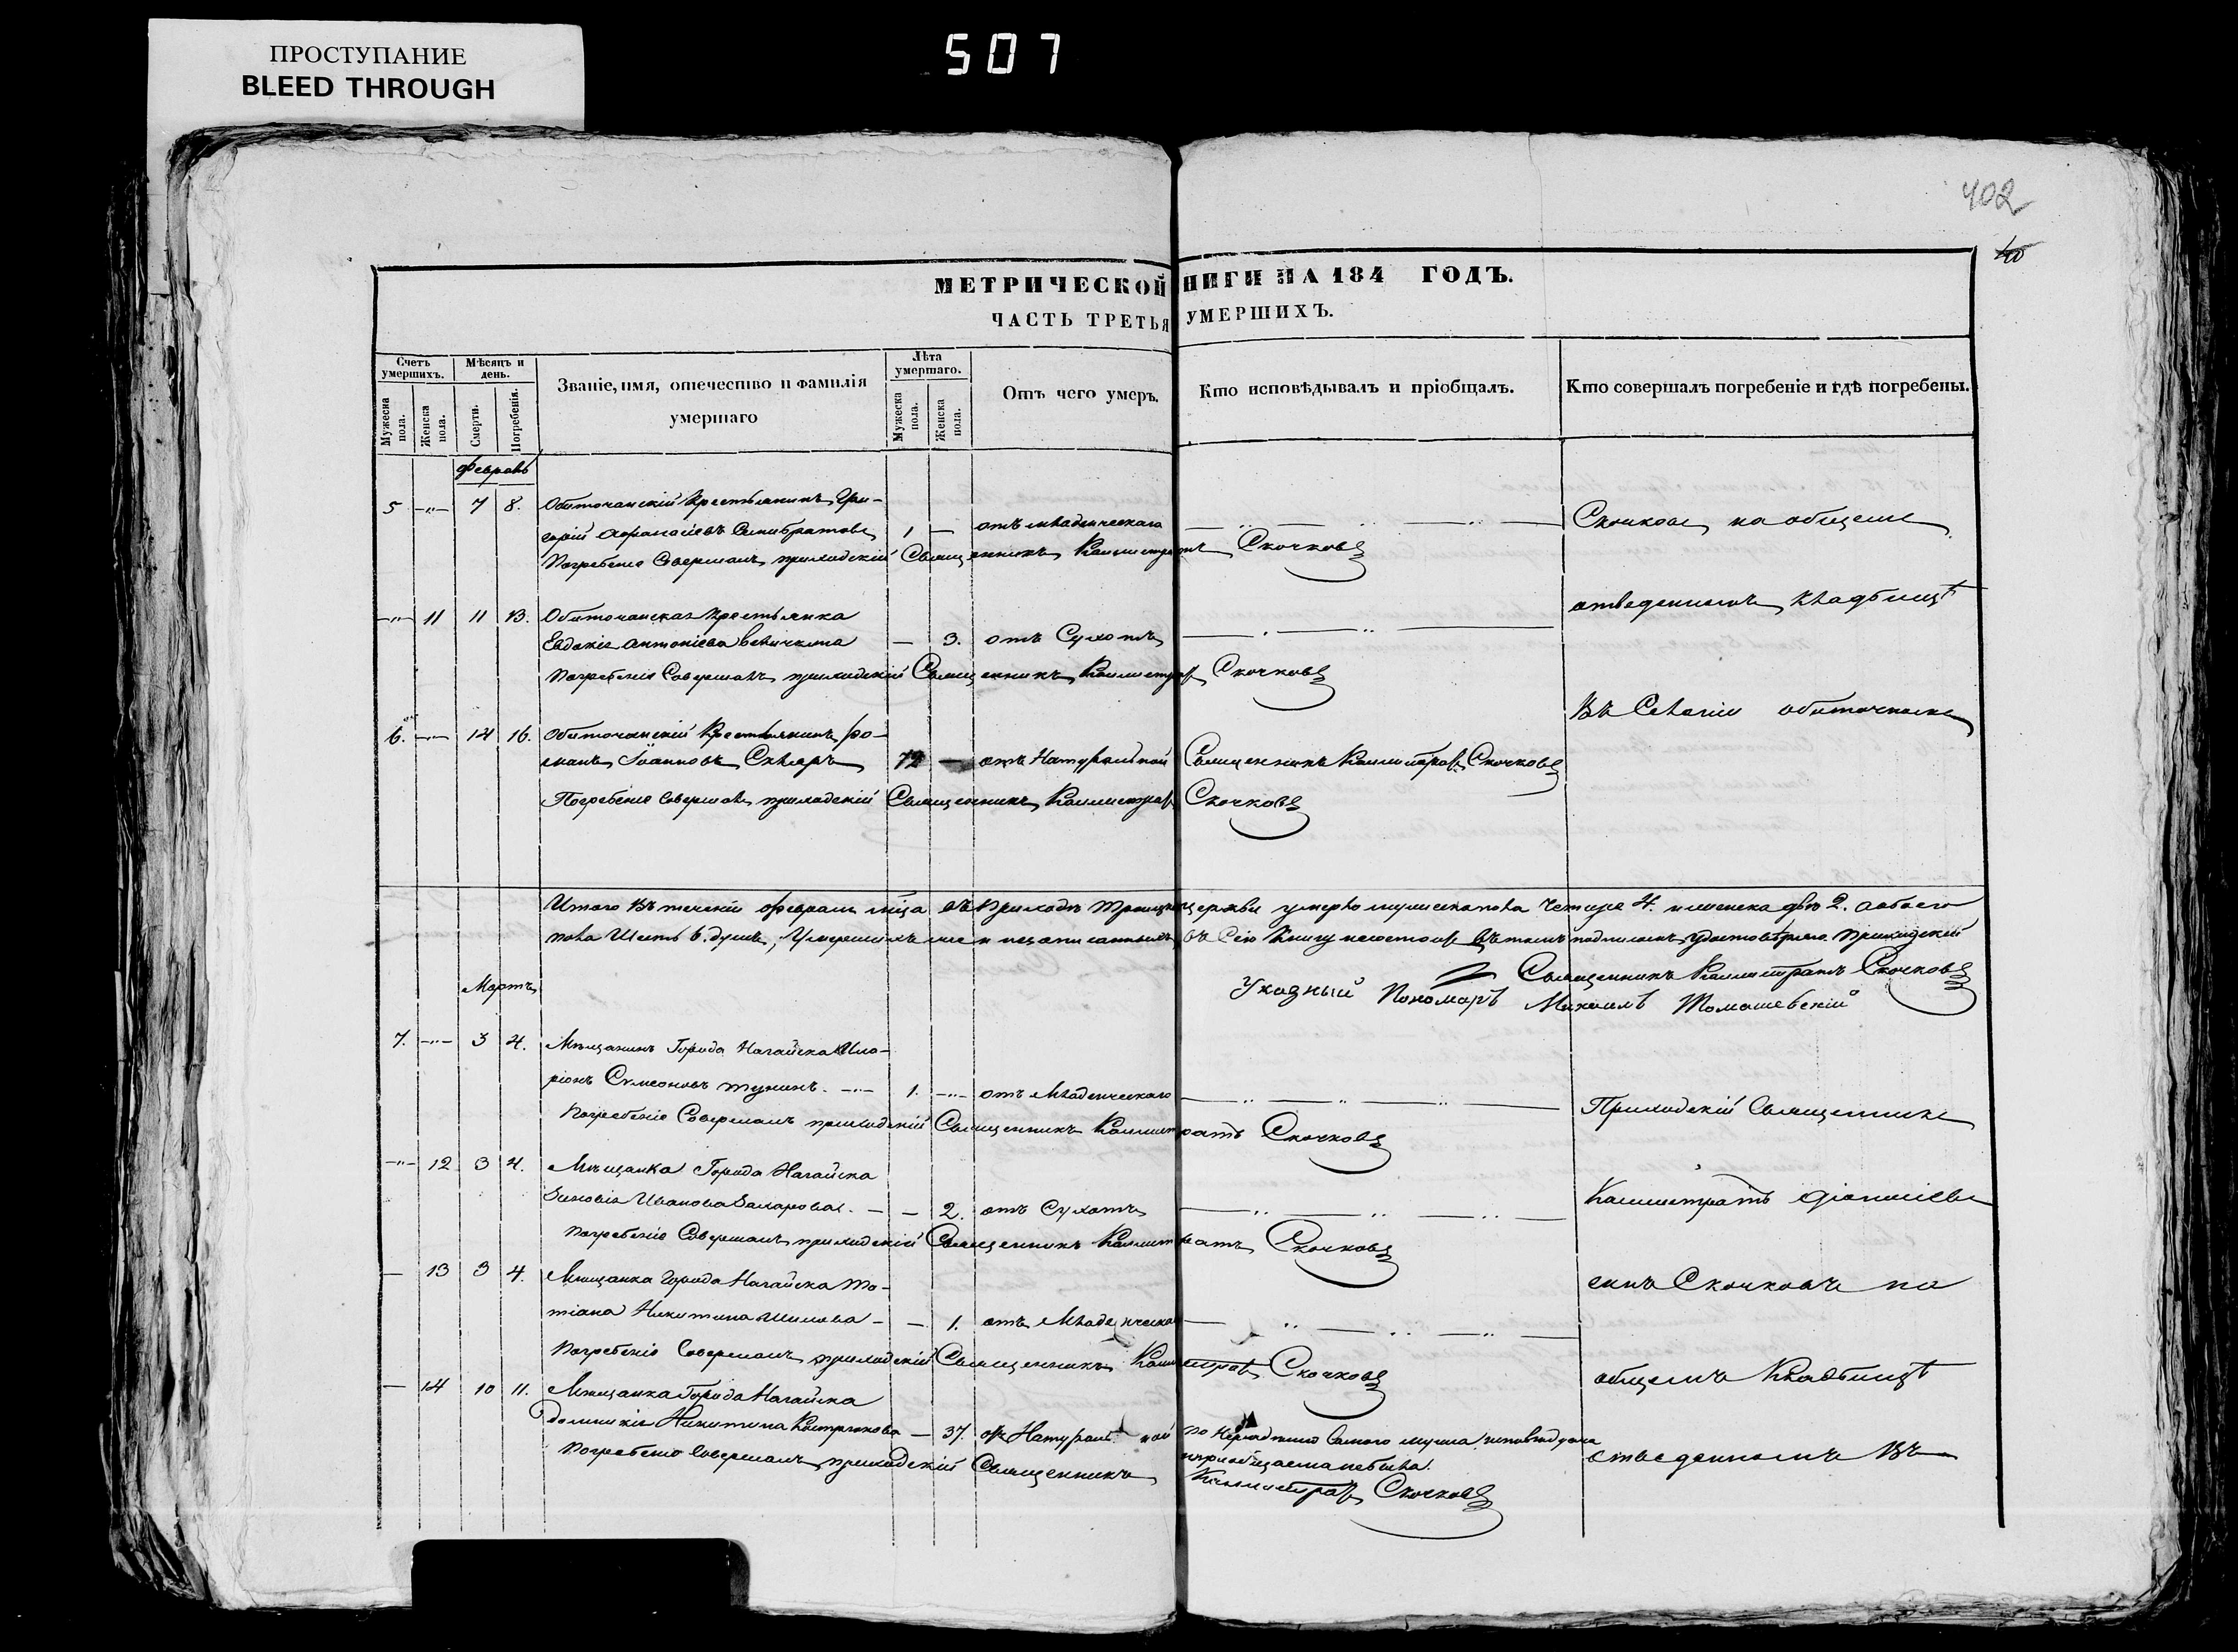 ПРОСТУПАНИЕ
BLEED THROUGH
507
402
40
МЕТРИЧЕСКОЙ НИГИ НА 184 ГОДЪ.
ЧАСТЬ ТРЕТЬЯ УМЕРШИХЪ.
Счетъ умершихъ.
Мужеска пола.
Женска пола.
Мѣсяцъ и день.
Смерти.
Погребенія.
Званіе, имя, отечество и фамилія умершаго
Лѣта умершаго.
Мужеска пола.
Женска пола.
Отъ чего умеръ.
Кто исповѣдывалъ и пріобщалъ.
Кто совершалъ погребеніе и гдѣ погребены.
Февраль
5 -"- 7 8. Обиточанскій Крестьянинъ Гри-
горій Афанасіевъ 1 — отъ младенческаго — Скочковъ на общемъ
Погребеніе Совершалъ приходскій Священникъ Каллистратъ Скочковъ
отведенномъ кладбищѣ
-"- 11 11 13. Обиточанская Крестьянка
Евдокія Антоніева Величкина — 3. отъ Сухотъ
Погребеніе Совершалъ приходскій Священникъ Каллистратъ Скочковъ
въ Селеніи Обиточномъ
6. -"- 14 16. Обиточанскій Крестьянинъ Ро-
манъ Іоанновъ Скляръ 72 — отъ Натуральной Священникъ Каллистратъ Скочковъ
Погребеніе Совершалъ приходскій Священникъ Каллистратъ Скочковъ
Итого въ теченіи февраля м҃ца въ приходѣ Троицкой церкви умерло мужеска пола четыре 4. и женска двѣ 2. а обоего
пола Шесть 6. душъ, Умершихъ же и незаписанныхъ въ Сею Книгу въ томъ подписомъ удостовѣряю Приходскій
Священникъ Каллистратъ Скочковъ
Указный Пономарь Михаилъ Томашевскій
Мартъ
7. -"- 3 4. Мѣщанинъ Города Нагайска Ила-
ріонъ Симеоновъ -"- 1. -"- отъ Младенческаго
Приходскій Священникъ
Погребеніе Совершалъ приходскій Священникъ Каллистратъ Скочковъ
-"- 12 3 4. Мѣщанка Города Нагайска
Зиновія Иванова Захарова. — — 2. отъ Сухотъ
Каллистратъ Діонисіевъ
Погребеніе Совершалъ приходскій Священникъ Каллистратъ Скочковъ
— 13 3 4. Мѣщанка Города Нагайска Та-
тіана Никитина Шилова — — 1. отъ Младенческа
сынъ Скочковъ на
Погребеніе Совершалъ приходскій Священникъ Каллистратъ Скочковъ
общемъ Кладбищѣ
— 14 10 11. Мѣщанка Города Нагайска
Домникія Никитина — 37. отъ Натуральной по самого мужа исповѣдуема
и пріобщаема небыла.
отведенномъ въ
Погребеніе Совершалъ приходскій Священникъ Каллистратъ Скочковъ